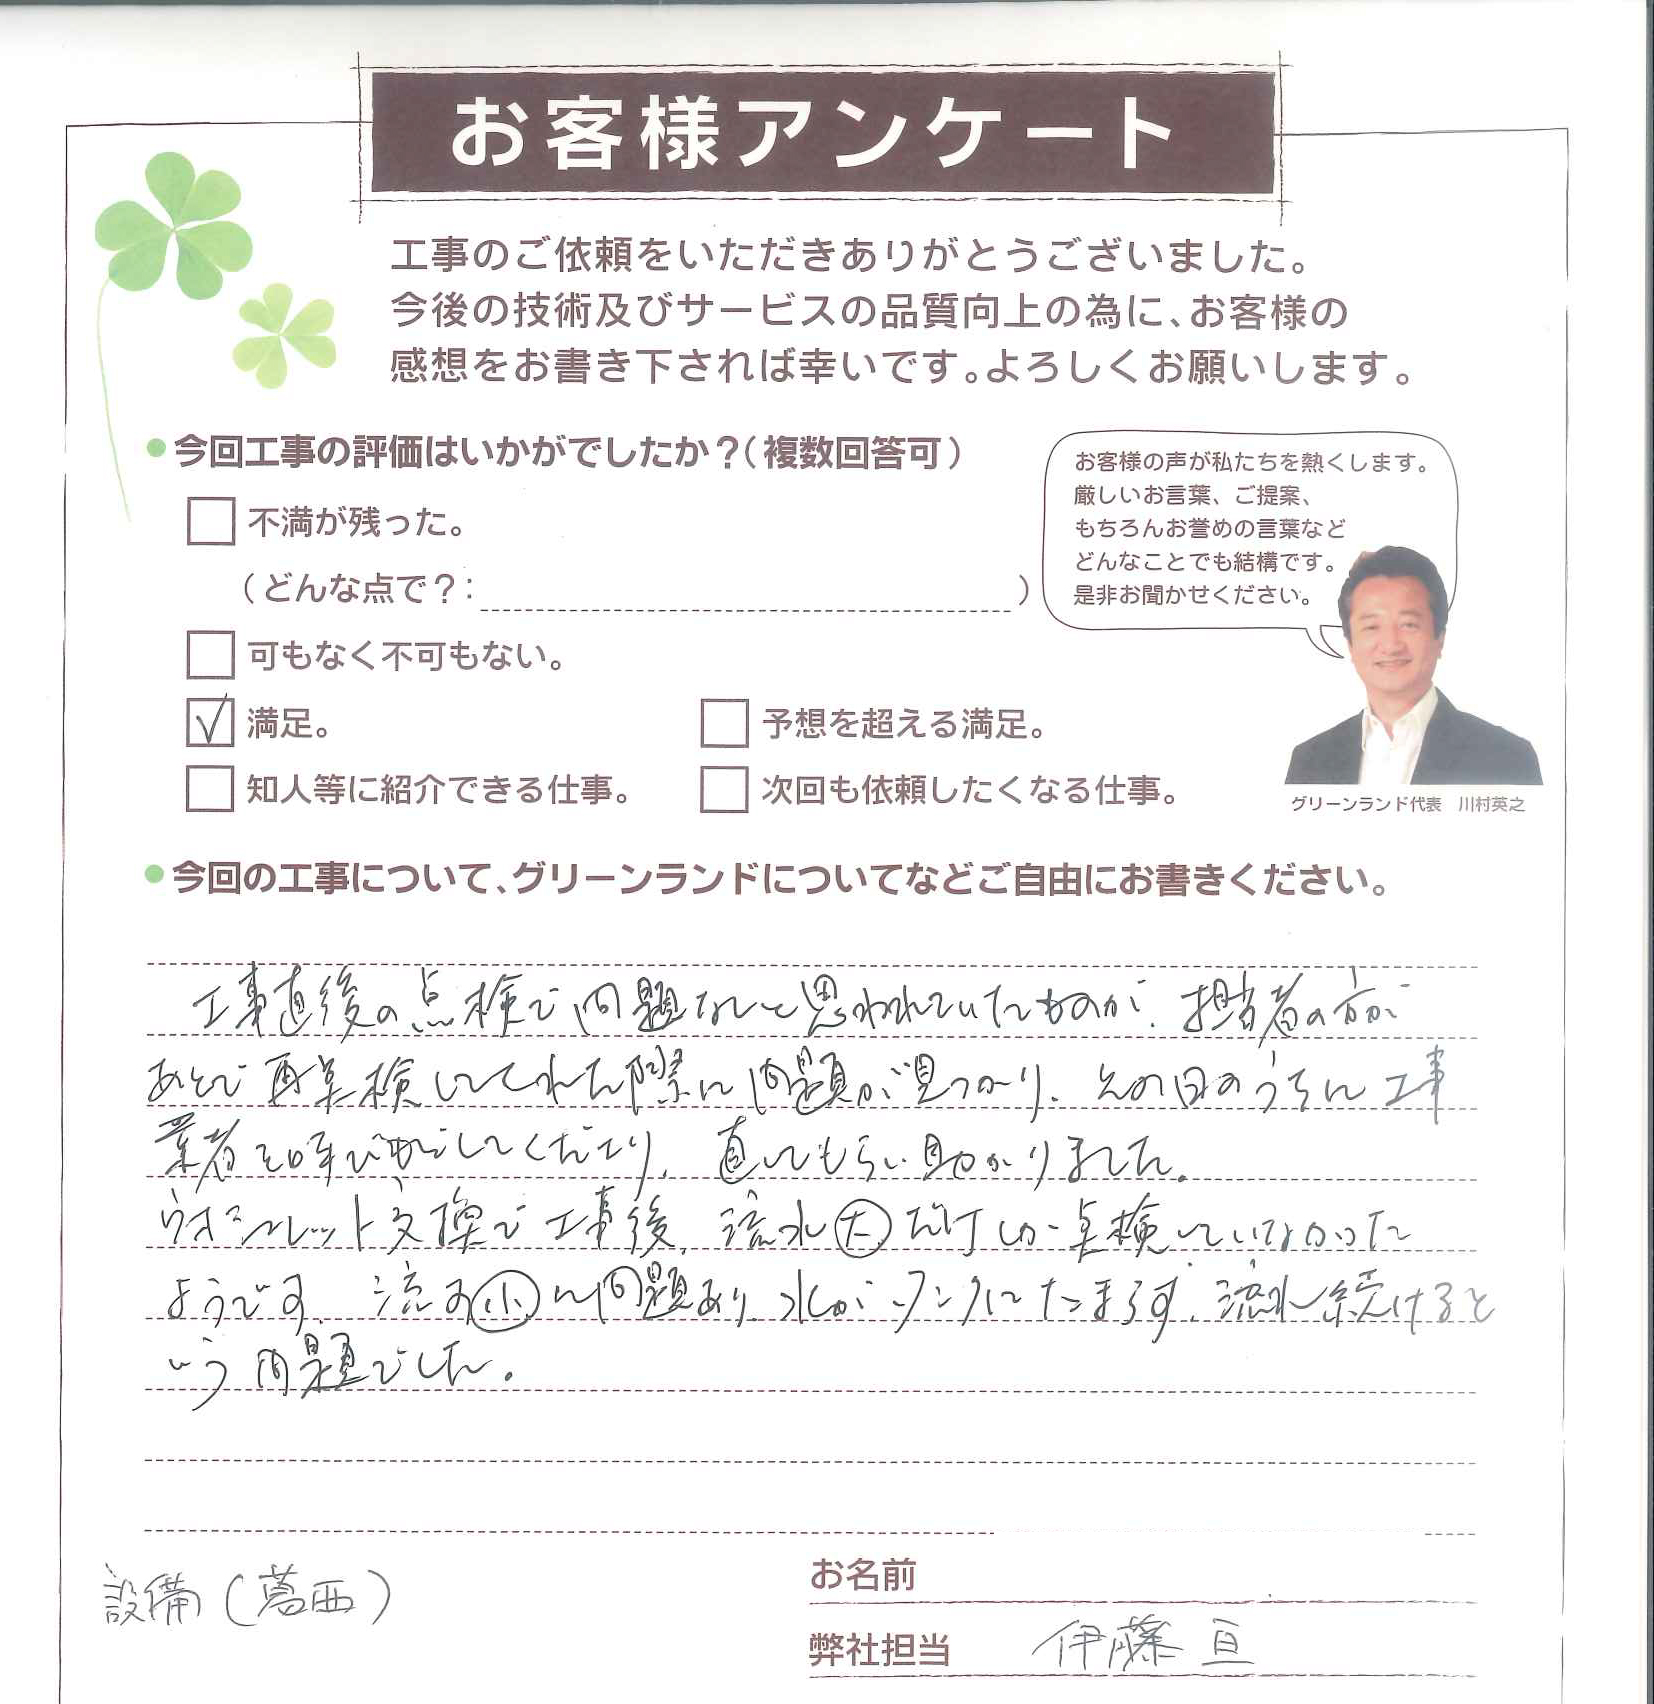 お客様アンケート
工事のご依頼をいただきありがとうございました。
今後の技術及びサービスの品質向上の為に、お客様の
感想をお書き下されば幸いです。よろしくお願いします。
今回工事の評価はいかがでしたか？（複数回答可）
不満が残った。
（どんな点で？：　　　）
可もなく不可もない。
満足。
予想を超える満足。
知人等に紹介できる仕事。
次回も依頼したくなる仕事。
お客様の声が私たちを熱くします。
厳しいお言葉、ご提案、
もちろんお誉めの言葉など
どんなことでも結構です。
是非お聞かせください。
グリーンランド代表　川村英之
今回の工事について、グリーンランドについてなどご自由にお書きください。
工事直後の点検で問題ないと思われていたものが、担当者の方が
あとで再点検してくれた際に問題が見つかり、その日のうちに工事
業者を呼び出してくださり、直してもらい助かりました。
ウォシュレット交換で工事後、流水大だけしか点検していなかった
ようです。流す小に問題あり、水がタンクにたまらず、流れ続けると
いう問題でした。
設備（葛西）
お名前
弊社担当　伊藤 亘